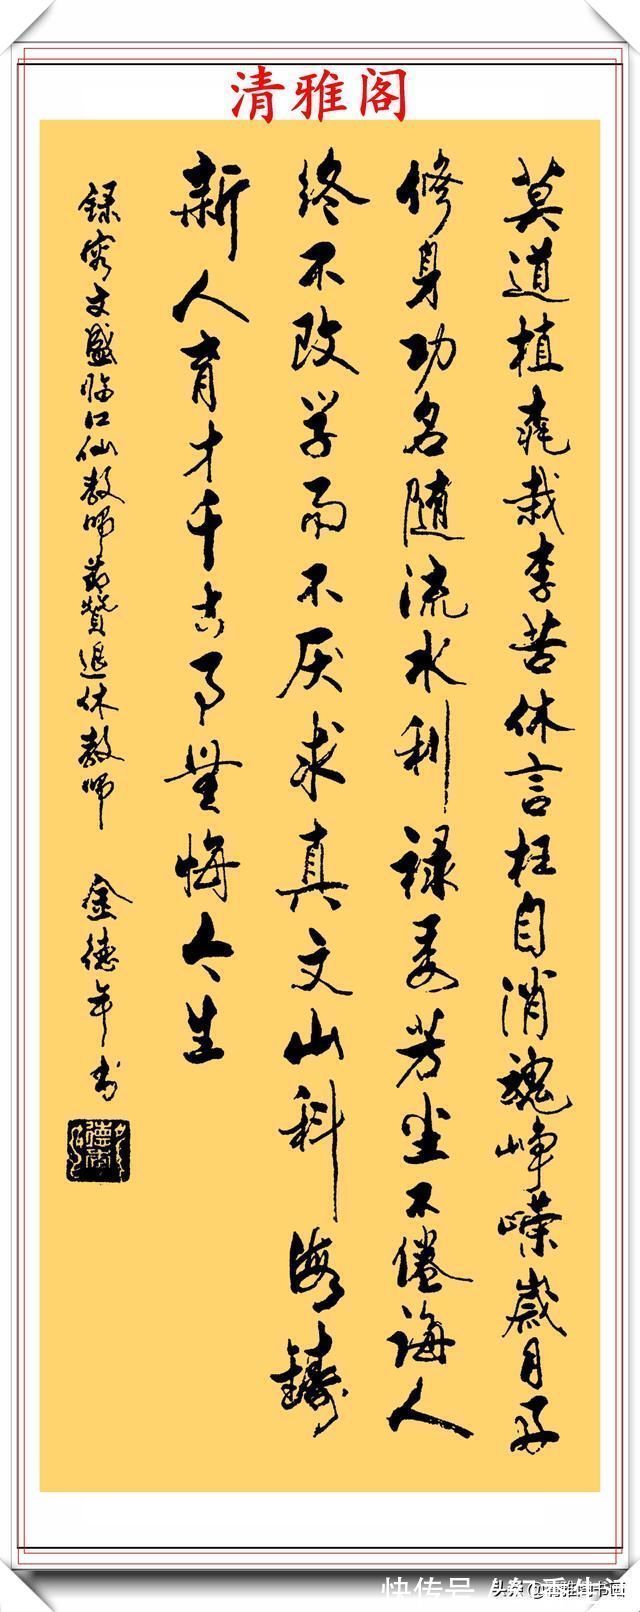 清雅阁
莫道植桃栽李苦休言枉自消魂峥嵘歲月好
修身功名随流水利禄委芳尘不倦诲人
终不改学而不厌求真文山科海鑄
新人育才千古事無悔今生
録文盛临江仙教师节赞退休教师 金德年书
快传号
头条@清雅阁书画